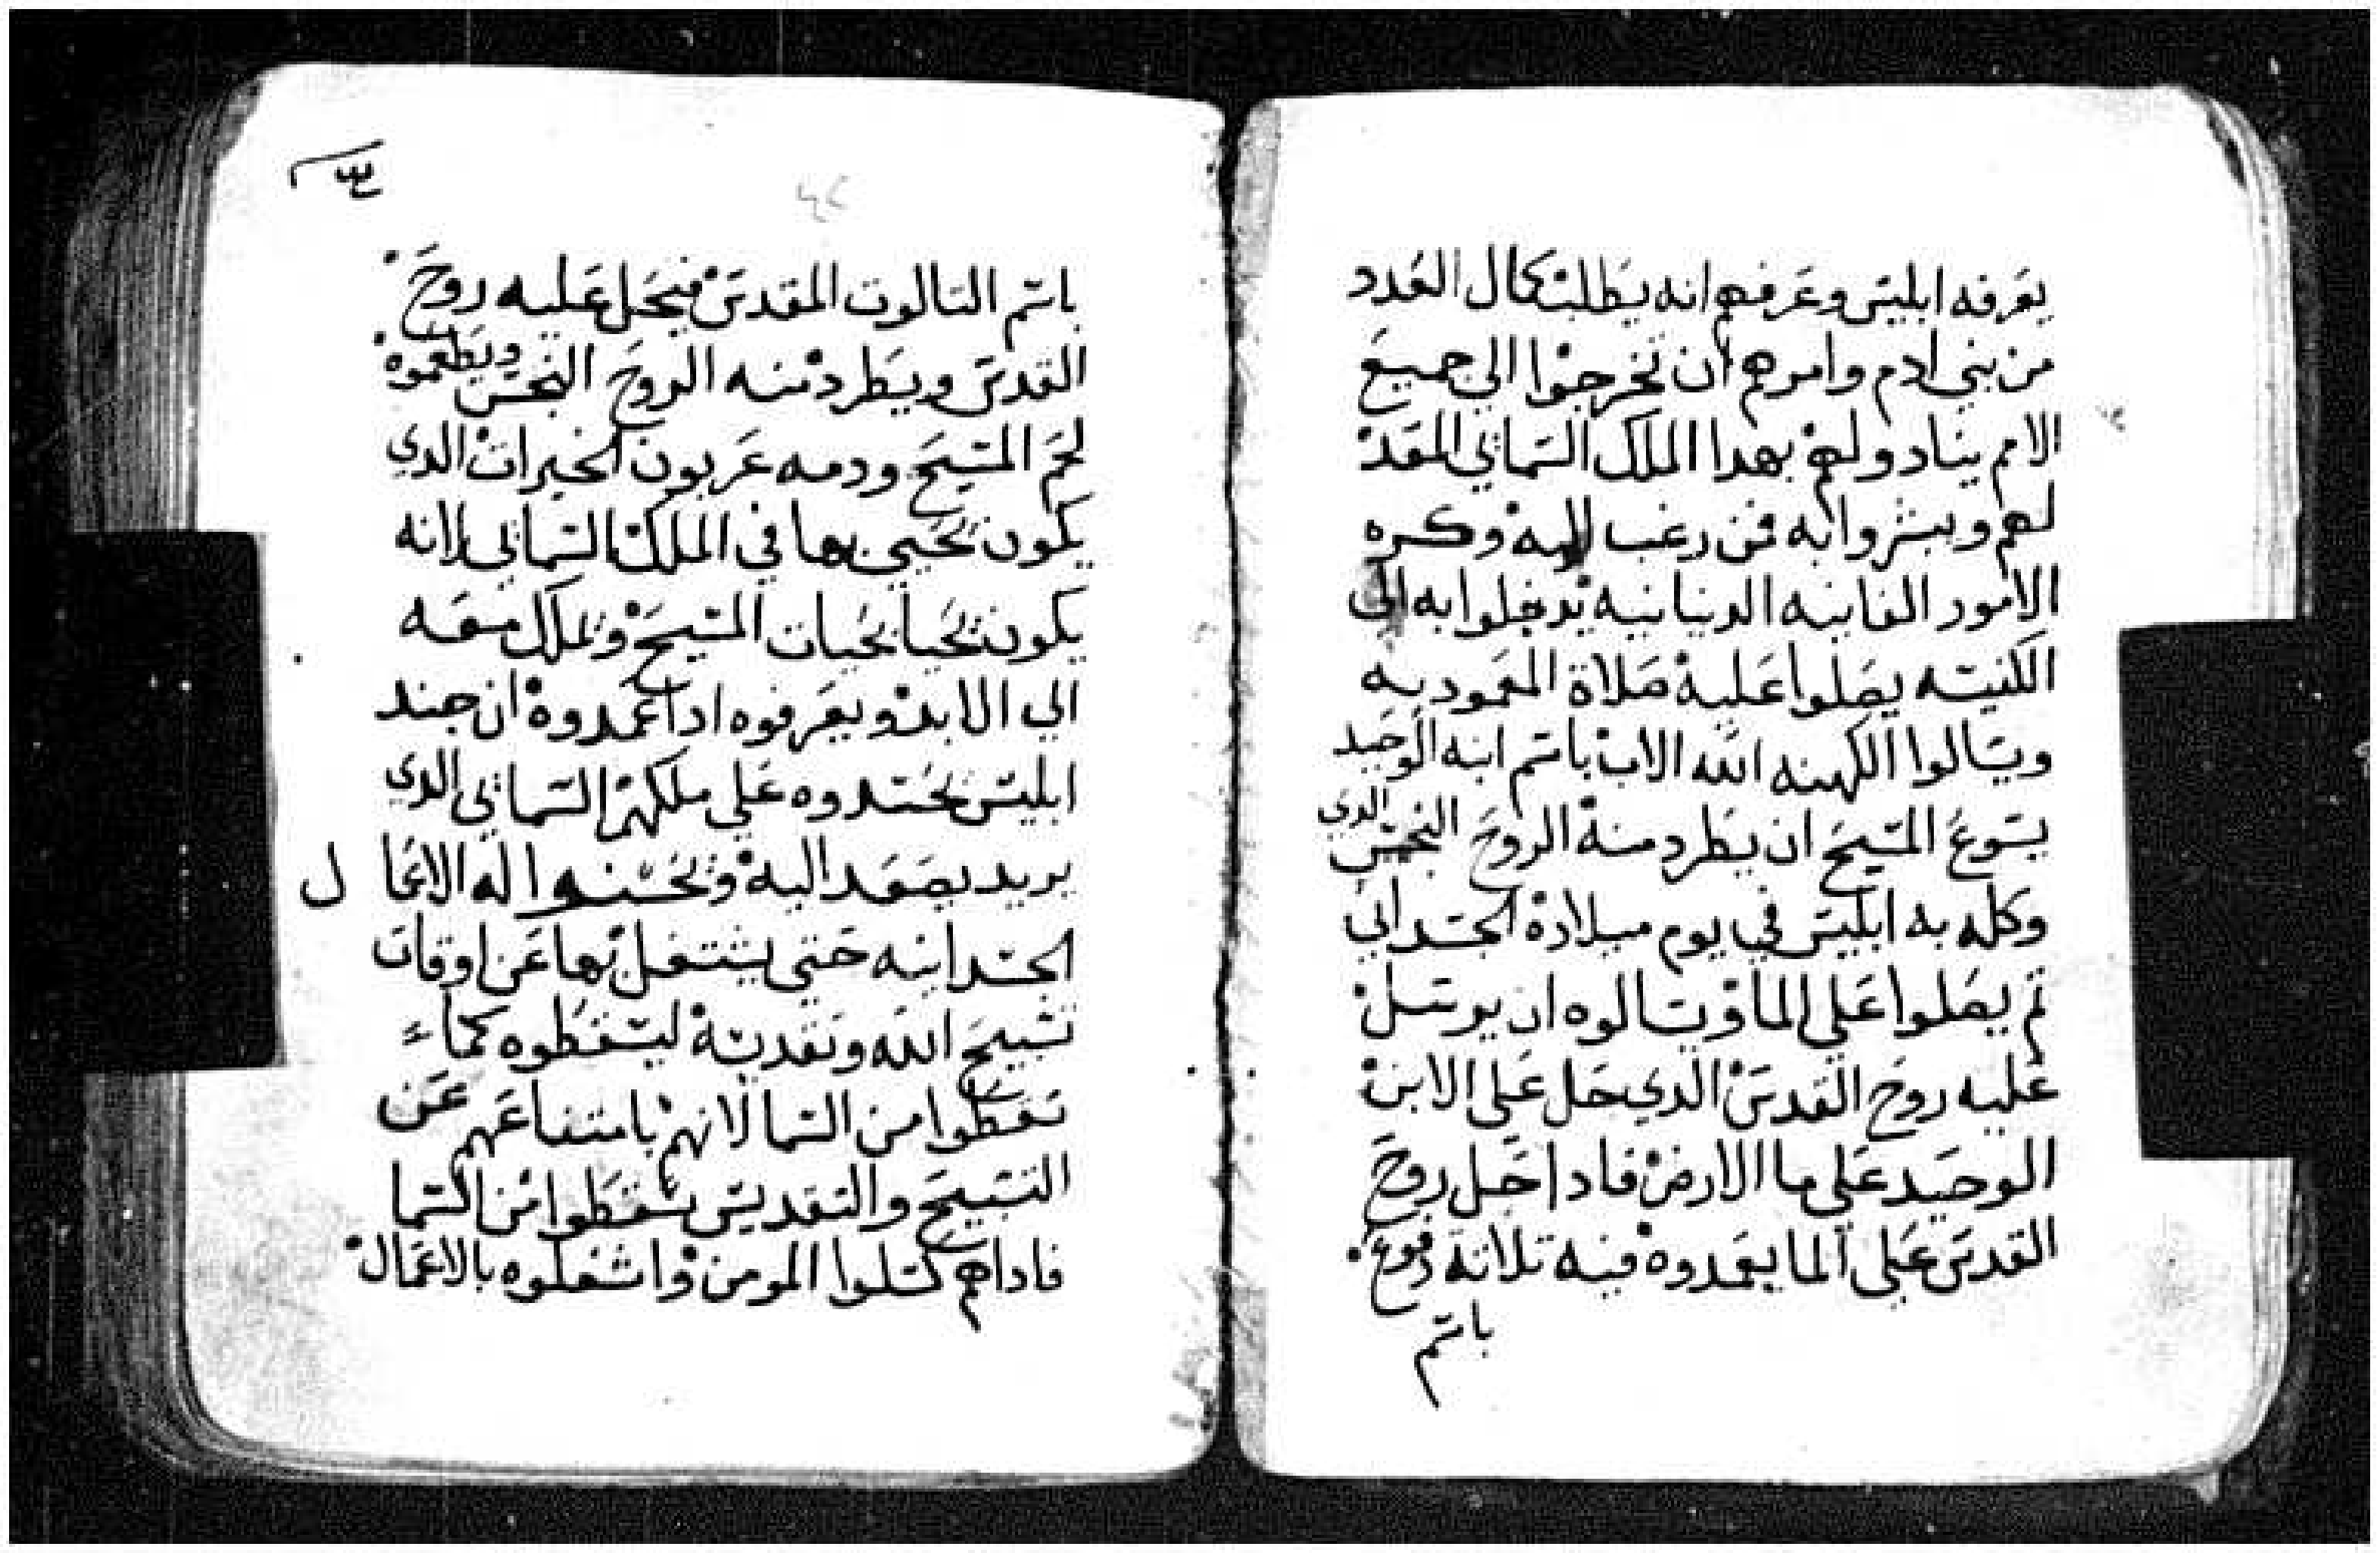 يعرفه ابليس وعرفهم انه يطلب كمال العدد
من بني ادم وامرهم ان يخرجوا الي جميع
الامم ينادولهم بهدا الملك السماني المعد
لهم ويبشروا به فمن رغب اليه وكره
الامور الفانيه الدنيانيه يدخلوا به الي
الكنيسه يصلوا عليه صلاة المعموديه
ويسالوا الكهنه الله الاب باسم ابنه الوحيد
يسوع المسيح ان يطرد منه الروح النجس الدي
وكله به ابليس في يوم ميلاده الجسداني
تم يصلوا علي الما ويسالوه ان يرسل
عليه روح القدس الدي حل علي الابن
الوحيد علي ما الارض فادا حل روح
القدس علي الما يعمدوه فيه تلاتة دفوع
باسم
باسم التالوت المقدس فيحل عليه روح
القدس ويطرد منه الروح النجس ويطعموه
لحم المسيح ودمه عربون الخيرات الدي
يكون يحيي بها في الملك السماني لانه
يكون يحيا بحيات المسيح ويملك معه
الي الابد ويعرفوه ادا عمدوه ان جند
ابليس يحسدوه علي ملكهم السماني الدي
يريد يصعد اليه ويحسنوا له الاعمال
الجسدانيه حتي يشتغل بها عن اوقات
تسبيح الله وتقديسه ليسقطوه كما
سقطوا من السما لانهم بامتناعهم عن
التسبيح والتقديس سقطوا من السما
فاداهم كسلوا المومن واشغلوه بالاعمال